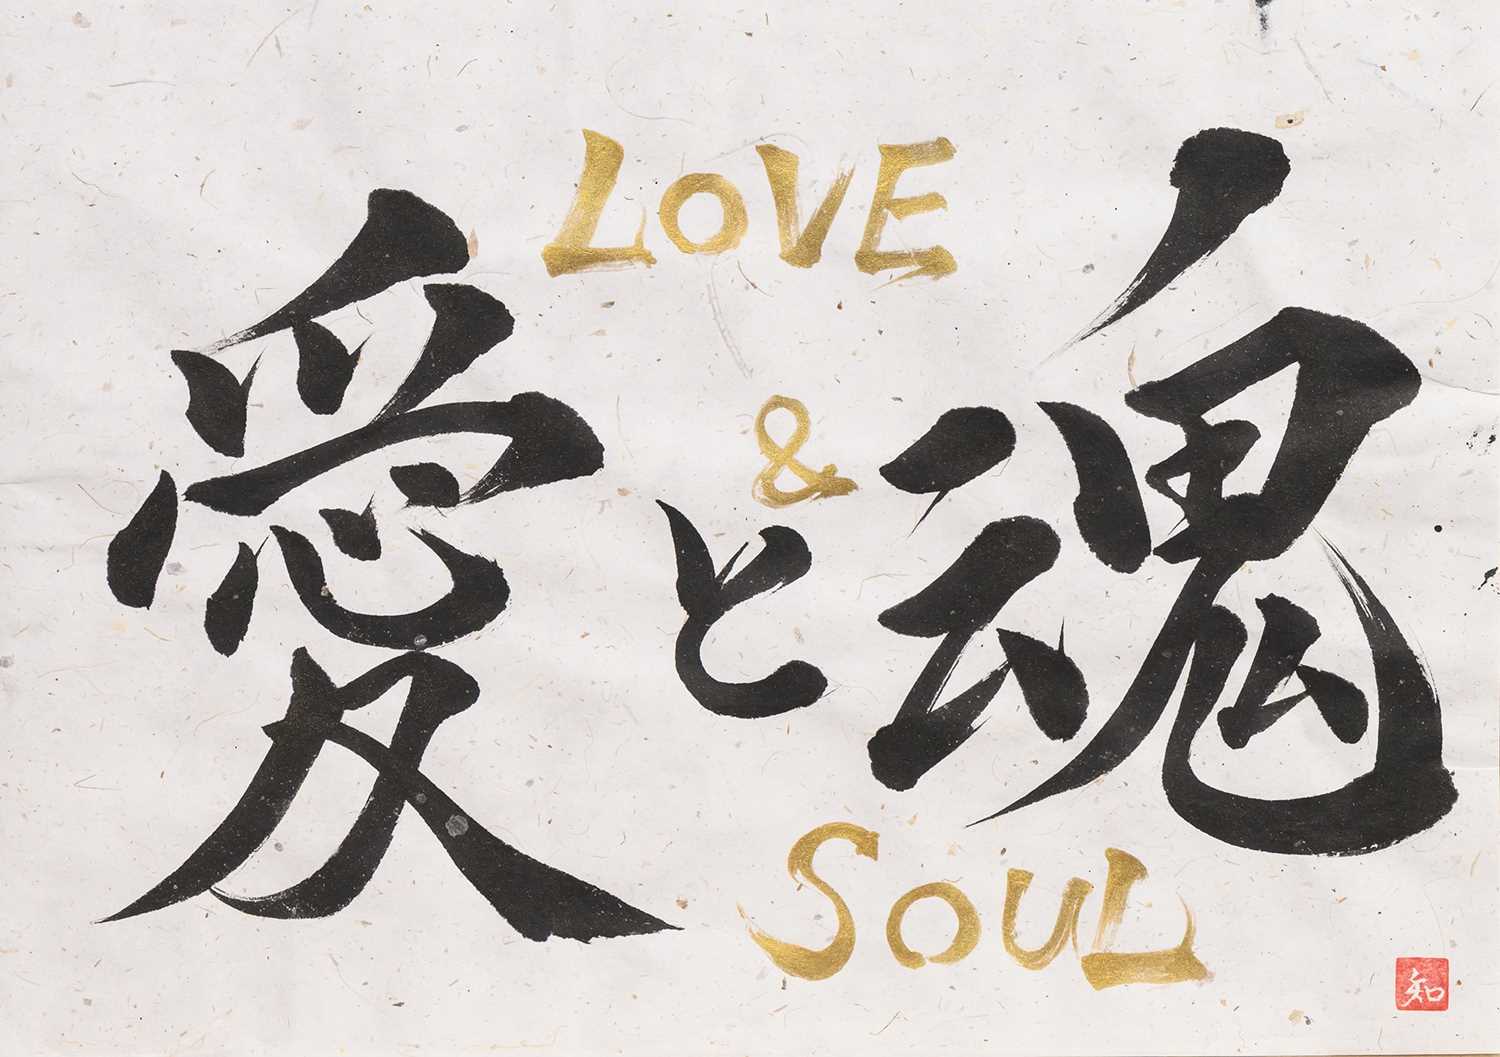 LOVE
&
愛と魂
SOUL
知